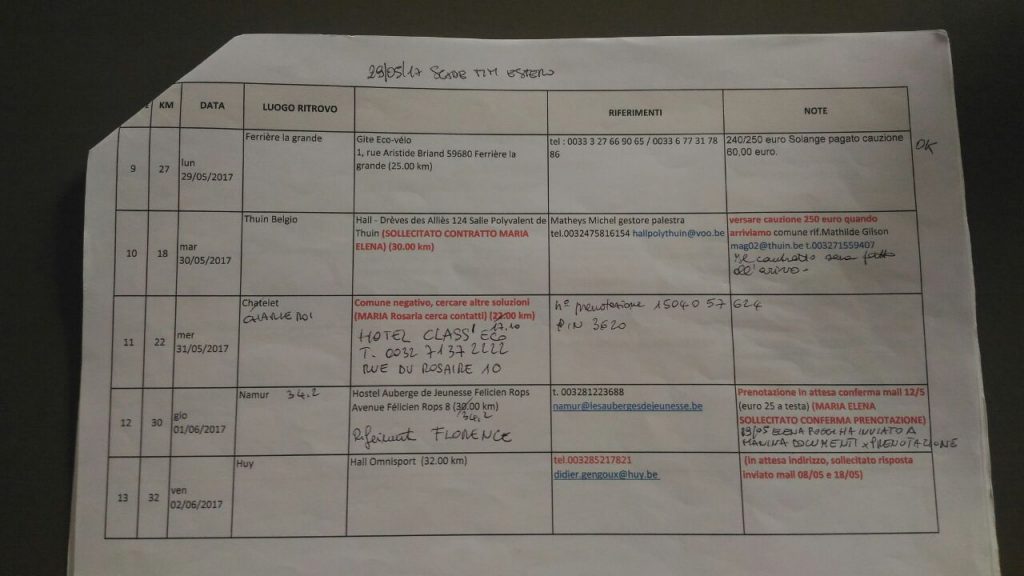 29/05/17 SCADE TIM ESTERO
KM DATA LUOGO RITROVO RIFERIMENTI NOTE
9 27 lun 29/05/2017
Ferrière la grande
Gite Eco-vélo
1, rue Aristide Briand 59680 Ferrière la
grande (25.00 km)
tel : 0033 3 27 66 90 65 / 0033 6 77 31 78
86
240/250 euro Solange pagato cauzione
60,00 euro.
OK
10 18 mar 30/05/2017
Thuin Belgio
Hall - Drèves des Alliès 124 Salle Polyvalent de
Thuin (SOLLECITATO CONTRATTO MARIA
ELENA) (30.00 km)
Matheys Michel gestore palestra
tel.0032475816154 hallpolythuin@voo.be
versare cauzione 250 euro quando
arriviamo comune rif.Mathilde Gilson
mag02@thuin.be t.003271559407
Il contratto sarà fatto
all'arrivo.
11 22 mer 31/05/2017
Chatelet
CHARLEROI
Comune negativo, cercare altre soluzioni
(MARIA Rosaria cerca contatti) (22.00 km)
17.10
HOTEL CLASS' ECO
T. 0032 7137 2222
RUE DU ROSAIRE 10
n° prenotazione 1504057624
PIN 3620
12 30 gio 01/06/2017
Namur 34,2
Hostel Auberge de Jeunesse Felicien Rops
Avenue Félicien Rops 8 (30.00 km)
34,2
Riferiment FLORENCE
t. 003281223688
namur@lesaubergesdejeunesse.be
Prenotazione in attesa conferma mail 12/5
(euro 25 a testa) (MARIA ELENA
SOLLECITATO CONFERMA PRENOTAZIONE)
ELENA HA INVIATO A
MARINA DOCUMENTI x PRENOTAZIONE
13 32 ven 02/06/2017
Huy
Hall Omnisport (32.00 km)
tel.003285217821
didier.gengoux@huy.be
(in attesa indirizzo, sollecitato risposta
inviato mail 08/05 e 18/05)